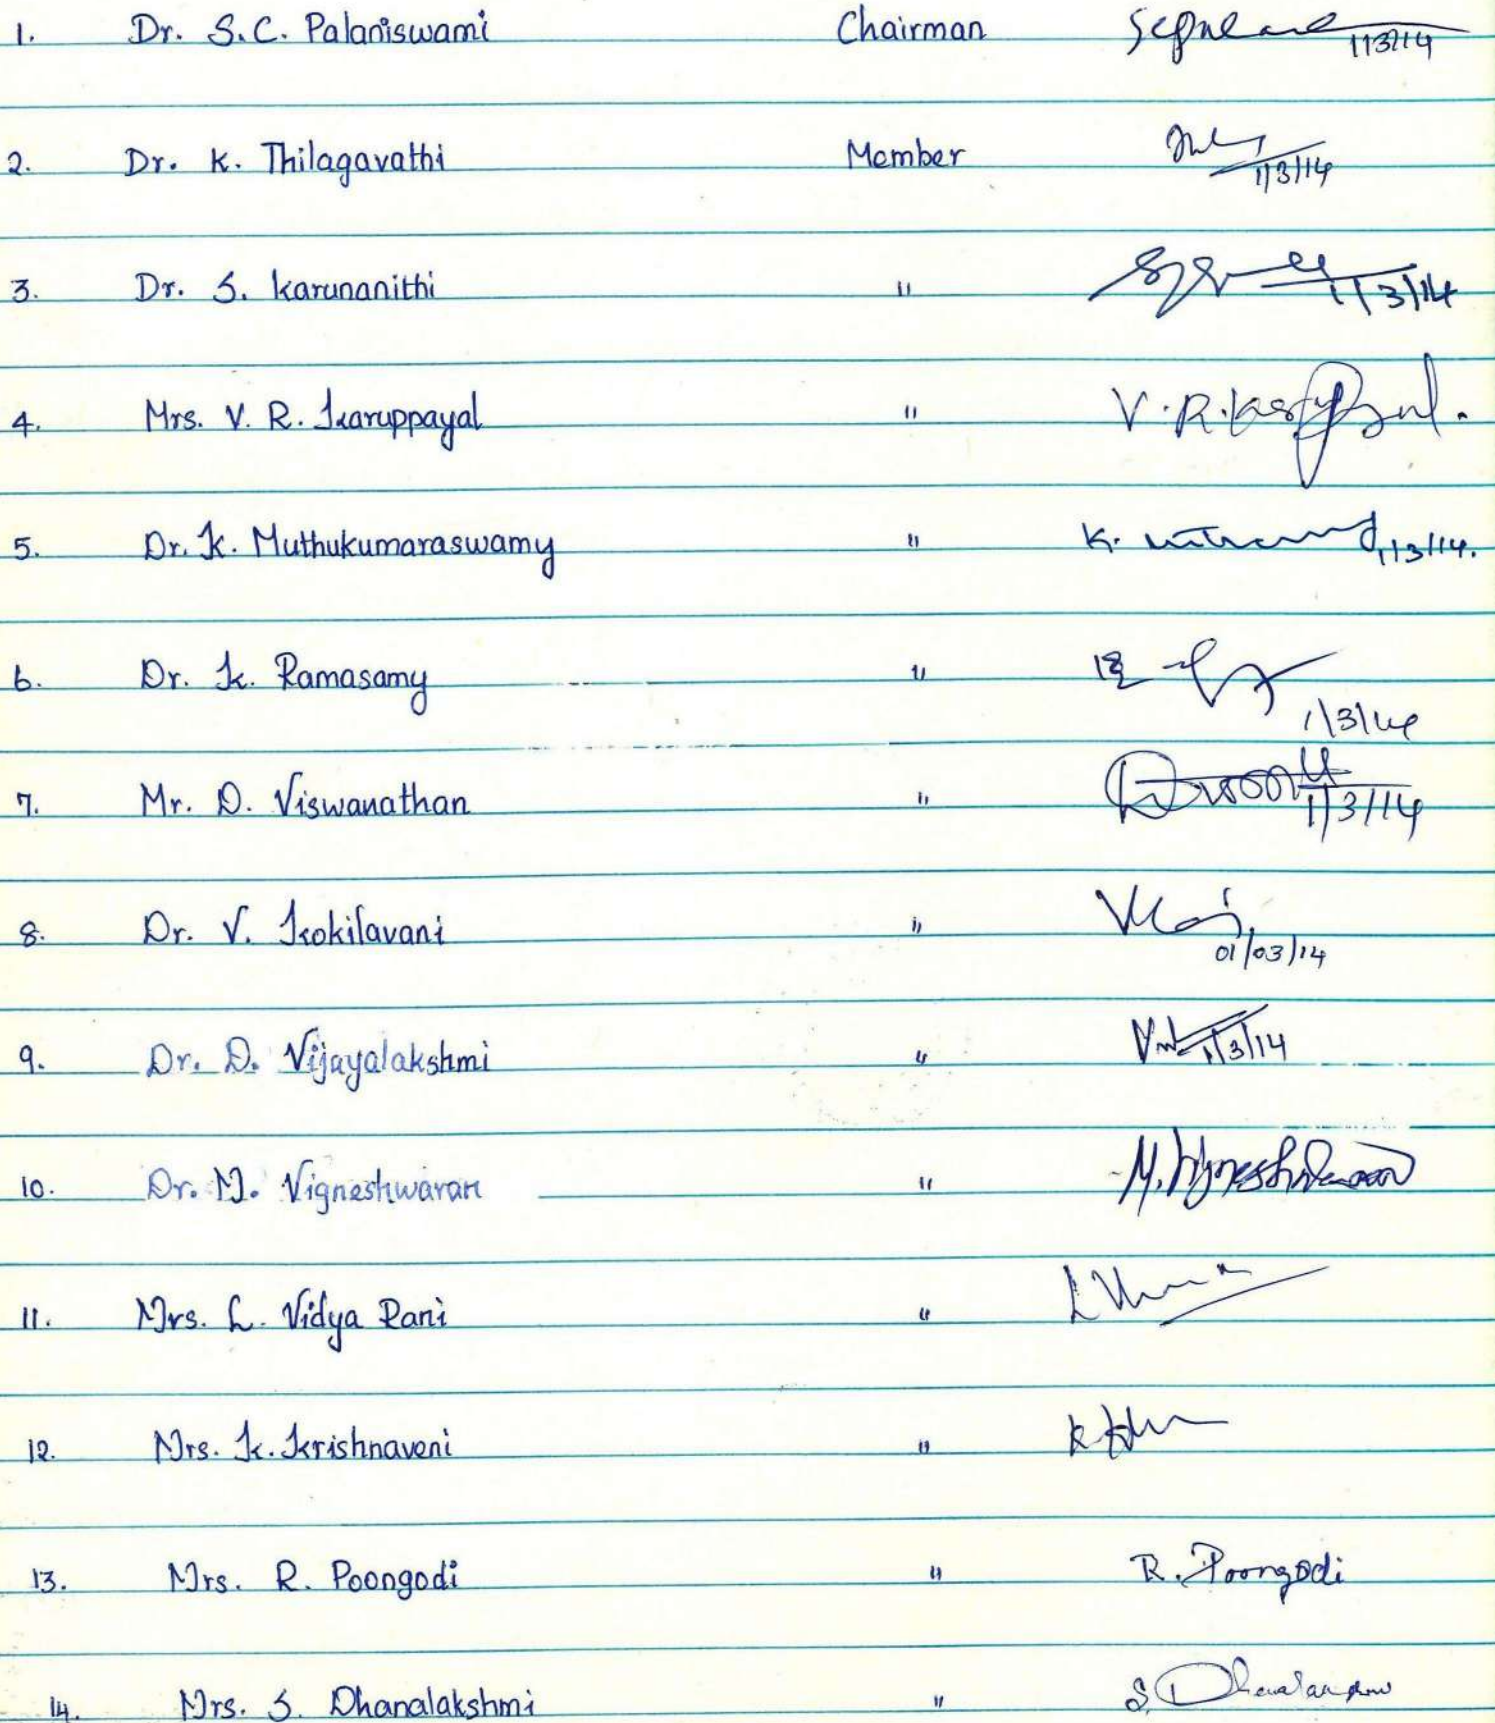 1. Dr. S.C. Palaniswami Chairman 1/3/14
2. Dr. K. Thilagavathi Member 1/3/14
3. Dr. S. Karunanithi " 1/3/14
4. Mrs. V. R. Karuppayal " V. R.
5. Dr. K. Muthukumaraswamy " K. 1/3/14.
6. Dr. K. Ramasamy "
1/3/14
7. Mr. D. Viswanathan " 1/3/14
8. Dr. V. Kokilavani "
01/03/14
9. Dr. D. Vijayalakshmi " 1/3/14
10. Dr. M. Vigneshwaran " M. Vigneshwaran
11. Mrs. L. Vidya Rani "
12. Mrs. K. Krishnaveni "
13. Mrs. R. Poongodi " R. Poongodi
14. Mrs. S. Dhanalakshmi " S.